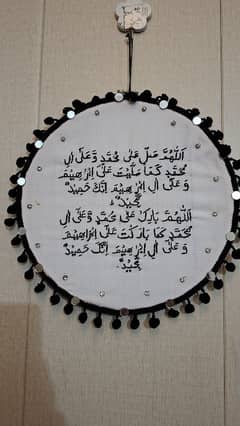 اَللّٰهُمَّ صَلِّ عَلٰى مُحَمَّدٍ وَّعَلٰٓى اٰلِ
مُحَمَّدٍ كَمَا صَلَّيْتَ عَلٰٓى اِبْرٰهِيْمَ
وَ عَلٰٓى اٰلِ اِبْرٰهِيْمَ اِنَّكَ حَمِيْدٌ
مَّجِيْدٌ
اَللّٰهُمَّ بَارِكْ عَلٰى مُحَمَّدٍ وَّعَلٰٓى اٰلِ
مُحَمَّدٍ كَمَا بَارَكْتَ عَلٰٓى اِبْرَاهِيْمَ
وَ عَلٰٓى اٰلِ اِبْرٰهِيْمَ اِنَّكَ حَمِيْدٌ
مَّجِيْدٌ